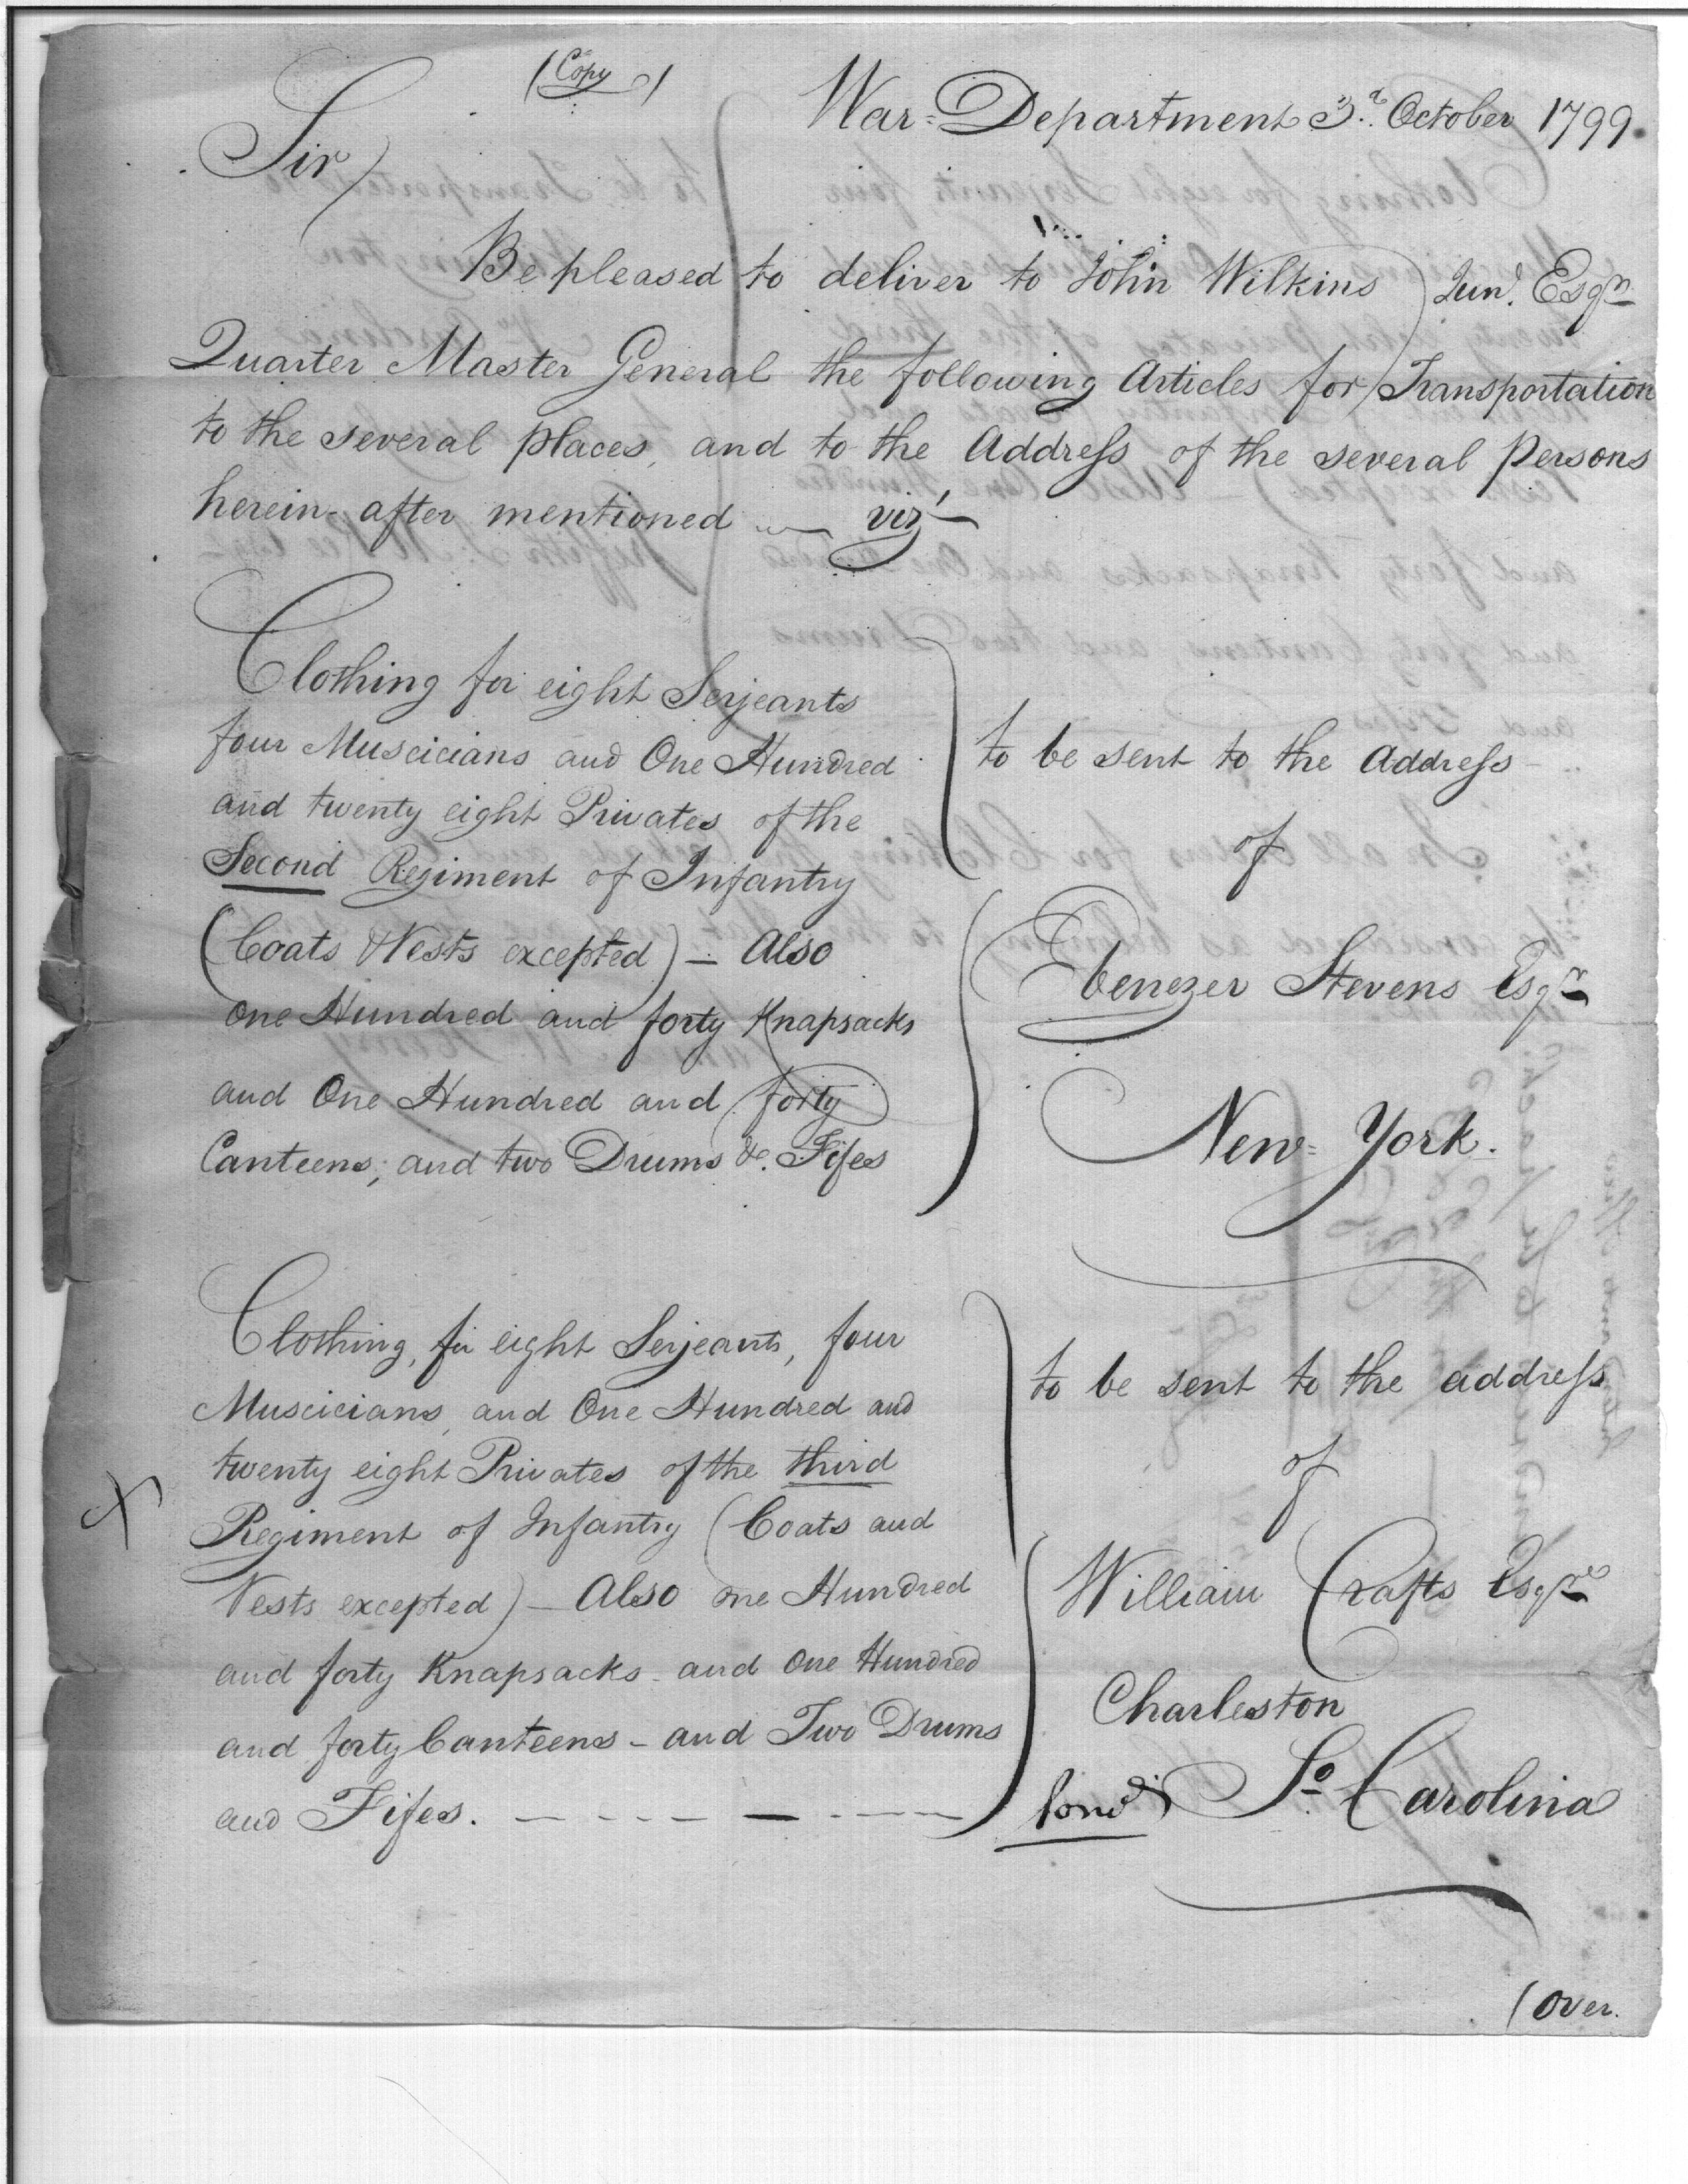 (Copy)
War=Department 3.d October 1799.
Sir
Be pleased to deliver to John Wilkins Junr. Esqr
Quarter Master General the following Articles for Transportation
to the several places, and to the Address of the several Persons
herein-after mentioned — vizt
Clothing for eight Serjeants
four Muscicians and One Hundred
and twenty eight Privates of the
Second Regiment of Infantry
(Coats & Vests excepted) — Also
One Hundred and forty Knapsacks
and One Hundred and forty
Canteens; and two Drums &. Fifes
to be sent to the Address
of
Ebenezer Stevens Esqr
New=York.
Clothing, for eight Serjeants, four
Muscicians, and One Hundred and
twenty eight Privates of the third
Regiment of Infantry (Coats and
Vests excepted) — Also one Hundred
and forty Knapsacks - and One Hundred
and forty Canteens - and Two Drums
and Fifes. — — — — — —
to be sent to the address
of
William Crafts Esqre
Charleston
So. Carolina
(Over.